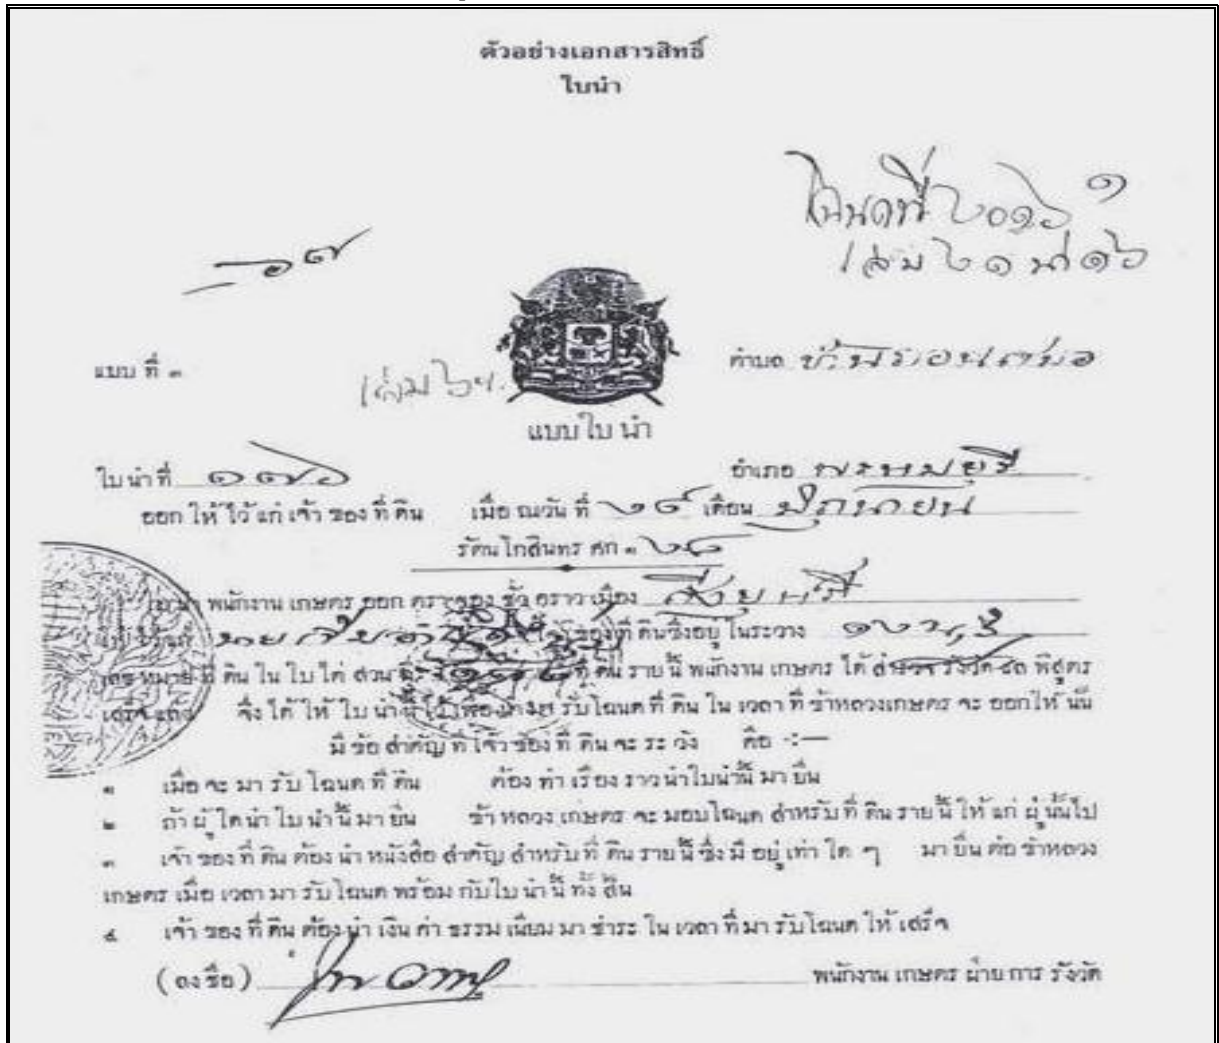 ตัวอย่างเอกสารสิทธิ์
ใบนำ
โฉนดที่ ๖๐๑๖ ๑
เล่ม ๖๑ น่า ๑๖
แบบ ที่ ๓
ตำบล
แบบใบ นำ
ใบนำที่ ๑๗๖
อำเภอ พรหมบุรี
ออก ให้ ไว้ แก่ เจ้า ของ ที่ ดิน เมื่อ ณวัน ที่ ๒๙ เดือน มิถุนายน
รัตนโกสินทร ศก ๑๒๘
พนักงาน เกษตร ออก ตราจอง ชั่ว คราว เมือง สิงห์บุรี
นาย ที่ ดินซึ่งอยู่ ในระวาง
ที่ ดิน ใน ใบ ไต่ สวน ที่ ที่ ดิน ราย นี้ พนักงาน เกษตร ได้ สำรวจ รังวัด แล พิสูตร
เสร็จ แล้ว จึง ได้ ให้ ใบ นำ นี้ ไว้ เพื่อ รับโฉนด ที่ ดิน ใน เวลา ที่ ข้าหลวงเกษตร จะ ออกให้ นั้น
มี ข้อ สำคัญ ที่ เจ้า ของ ที่ ดิน จะ ระ วัง คือ -:—
๑ เมื่อ จะ มา รับ โฉนด ที่ ดิน ต้อง ทำ เรื่อง ราว นำใบนำนี้ มา ยื่น
๒ ถ้า ผู้ ใด นำ ใบ นำ นี้ มา ยื่น ข้า หลวง เกษตร จะ มอบโฉนด สำหรับ ที่ ดิน ราย นี้ ให้ แก่ ผู้ นั้นไป
๓ เจ้า ของ ที่ ดิน ต้อง นำ หนังสือ สำคัญ สำหรับ ที่ ดิน ราย นี้ ซึ่ง มี อยู่ เท่า ใด ๆ มา ยื่น ต่อ ข้าหลวง
เกษตร เมื่อ เวลา มา รับ โฉนด พร้อม กับใบ นำ นี้ ทั้ง สิ้น
๔ เจ้า ของ ที่ ดิน ต้อง นำ เงิน ค่า ธรรม เนียม มา ชำระ ใน เวลา ที่ มา รับ โฉนด ให้ เสร็จ
(ลง ชื่อ) พนักงาน เกษตร ฝ่าย การ รังวัด